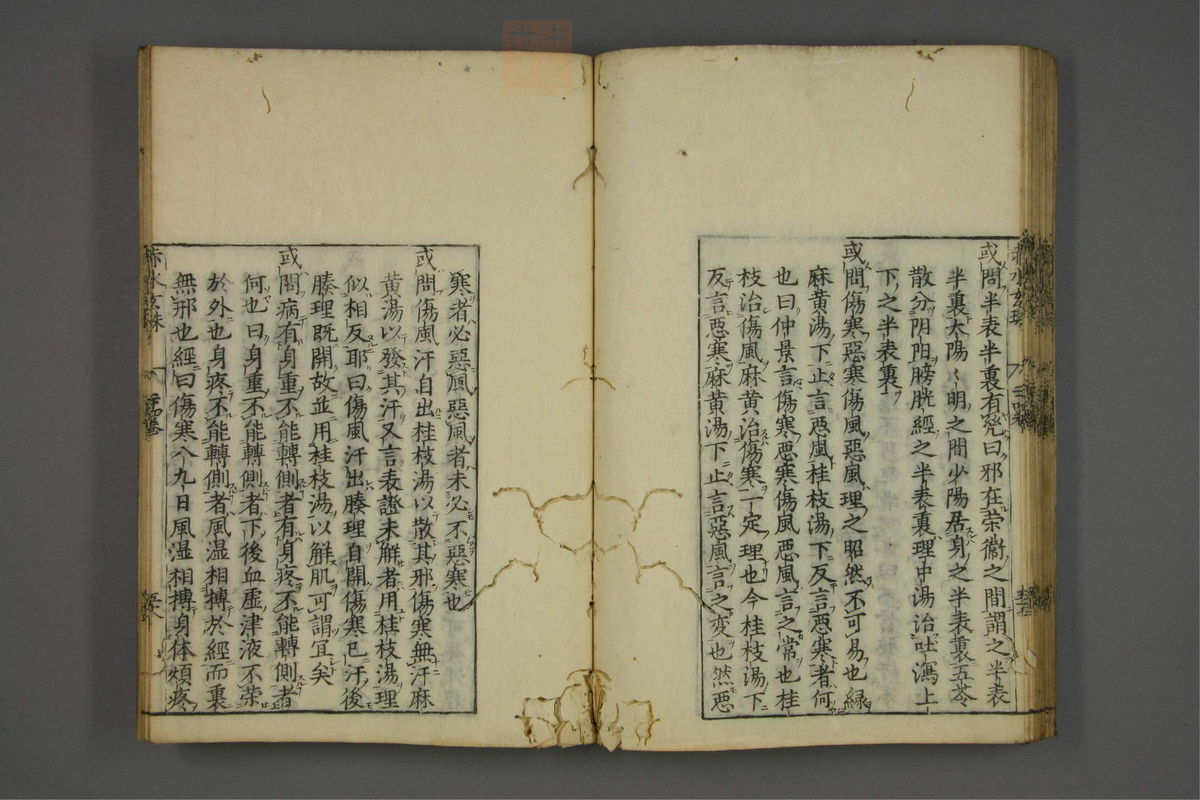 或問半表半裏有㒵曰邪在榮衞之間謂之半表
半裏太陽〻明之間少陽居身之半表裏五苓
散分阴阳膀胱經之半表裏理中湯治吐瀉上
下之半表裏
或問傷寒惡寒傷風惡風理之昭然不可易也緑
麻黄湯下止言惡風桂枝湯下反言惡寒者何
也曰仲景言傷寒惡寒傷風惡風言之常也桂
枝治傷風麻黄治傷寒一定理也今桂枝湯下
反言惡寒麻黄湯下止言惡風言之変也然惡
寒者必惡風惡風者未必不惡寒也
或問傷風汗自出桂枝湯以散其邪傷寒無汗麻
黄湯以發其汗又言表證未解者用桂枝湯理
似相反耶曰傷風汗出腠理自開傷寒已汗後
腠理既開故並用桂枝湯以解肌可謂宜矣
或問病有身重不能轉側者有身疼不能轉側者
何也曰身重不能轉側者下後血虚津液不榮
於外也身疼不能轉側者風温相摶於經而裏
無邪也經曰傷寒八九日風温相摶身体煩疼
赤水玄珠